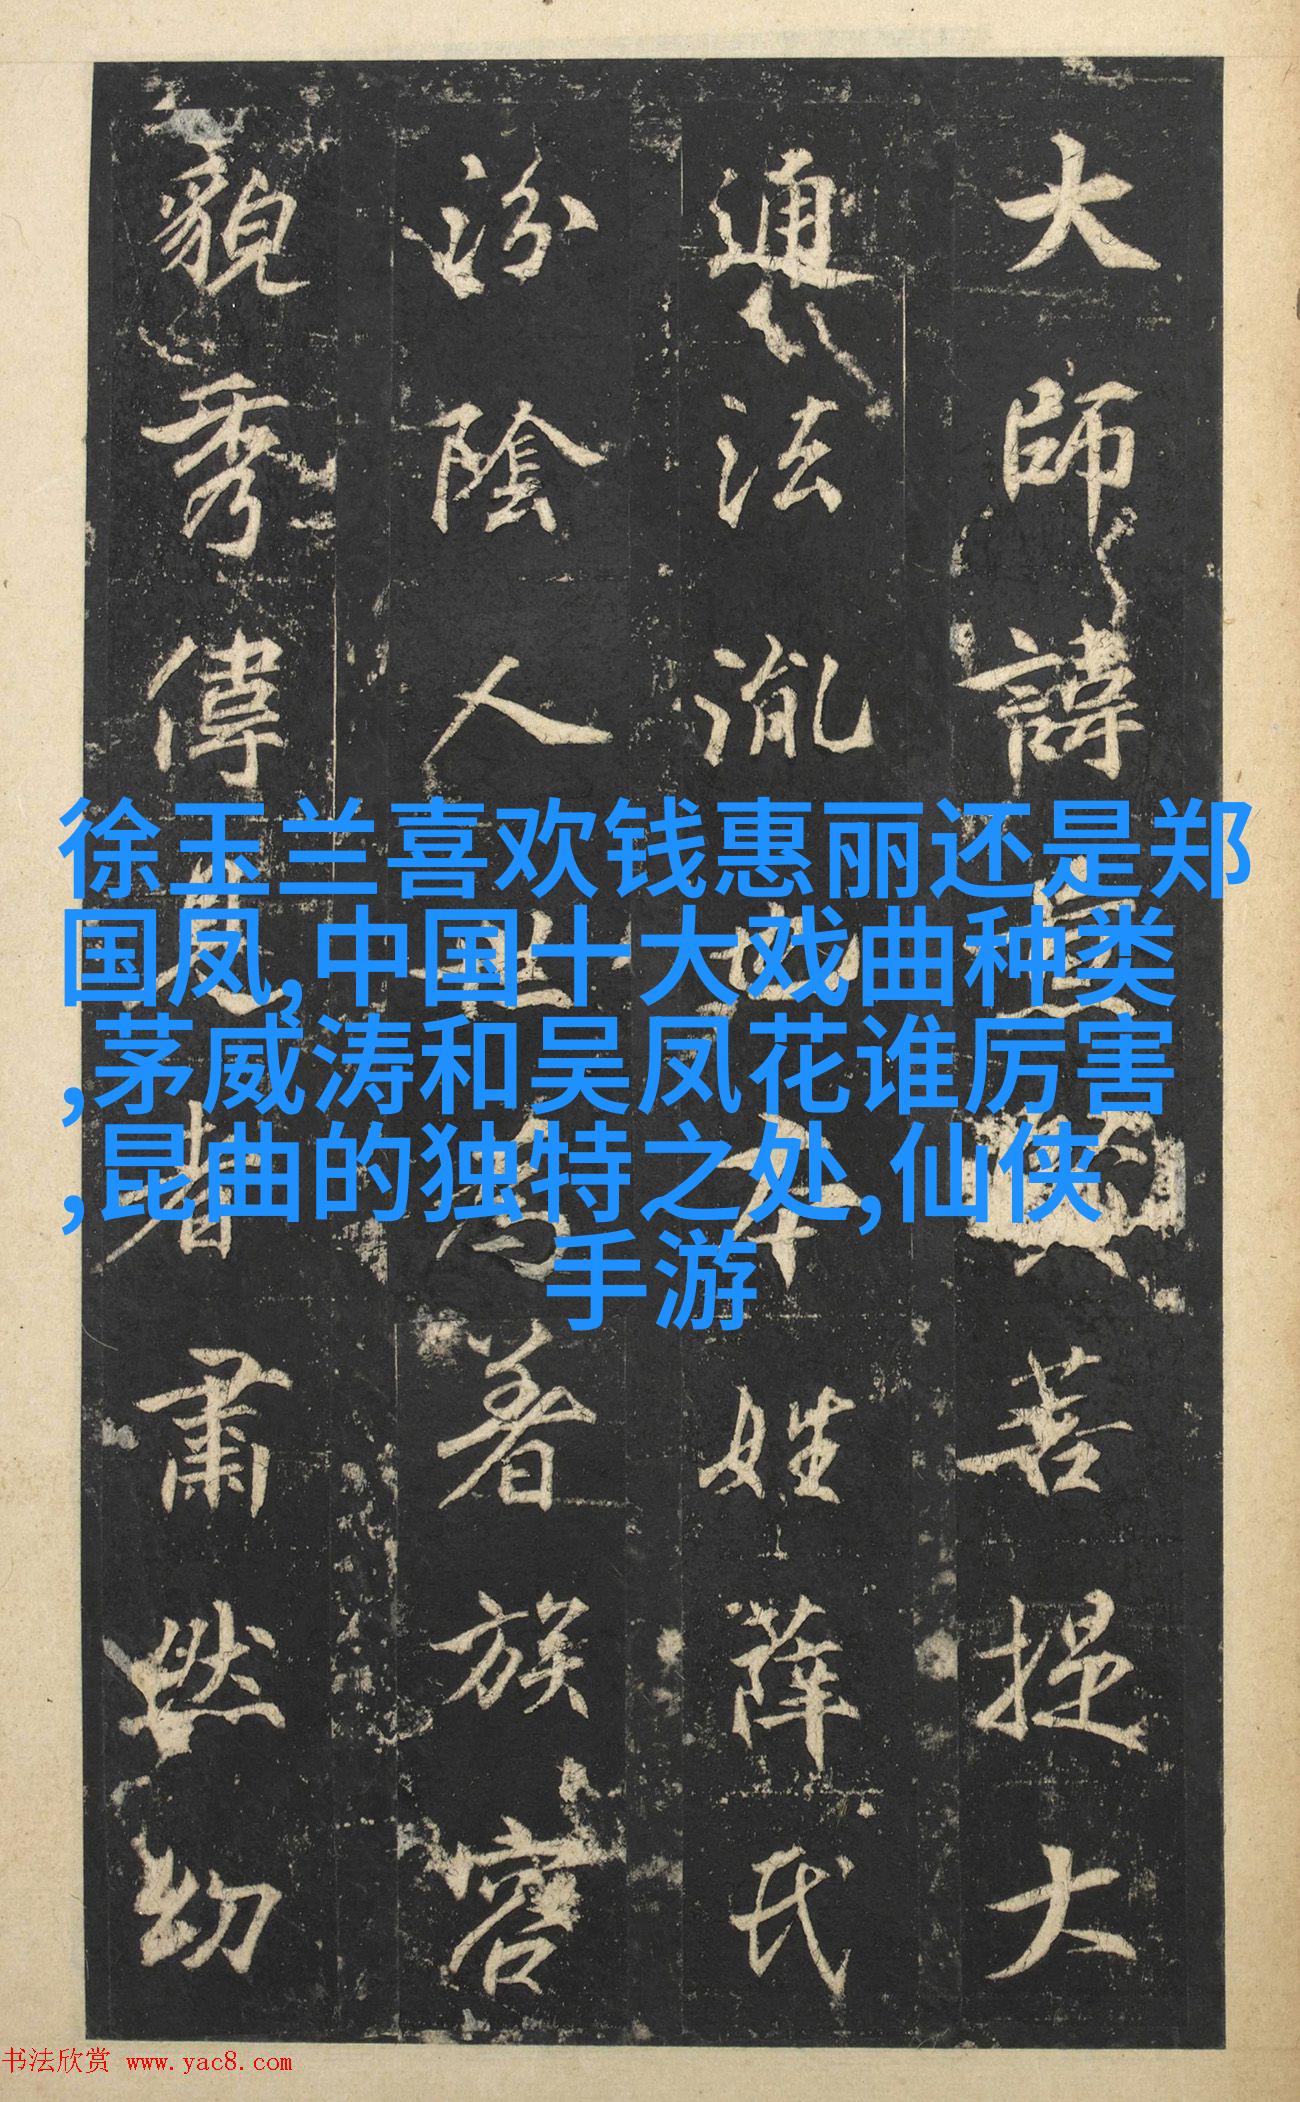 大師諱□□□菩提大
通法流也本姓薛氏
汾陰人世為著族容
貌秀偉見者肅然幼
徐玉兰喜欢钱惠丽还是郑
国凤,中国十大戏曲种类
,茅威涛和吴凤花谁厉害
,昆曲的独特之处,仙侠
手游
书法欣赏 www.yac8.com